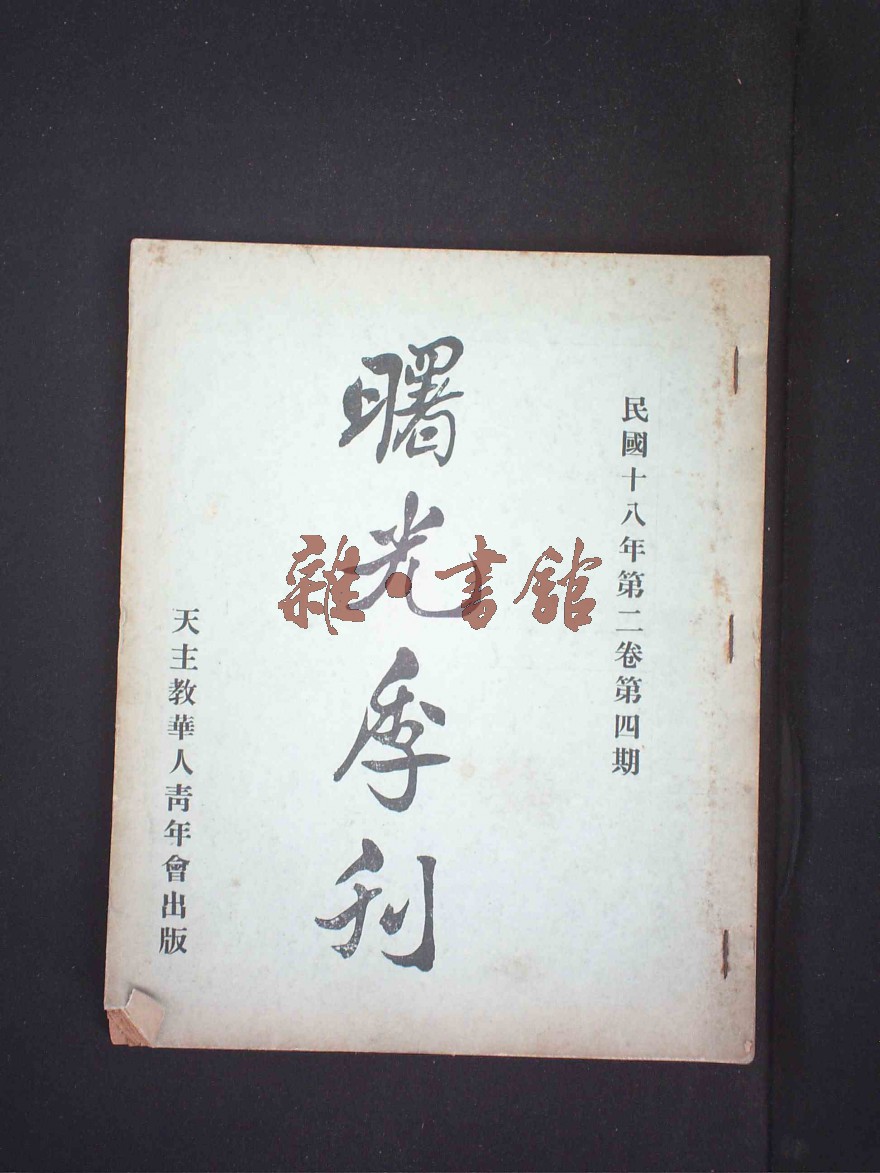 民國十八年第二卷第四期
曙光季刊
天主教華人靑年會出版
雜·書館